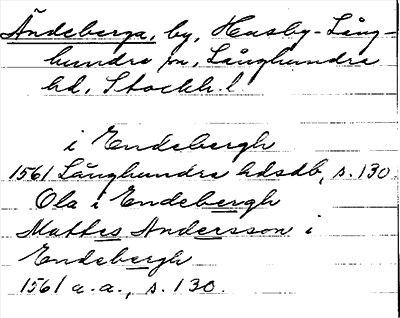 Ändeberga, by, Husby-Lång-
hundra sn, Långhundra
hd, Stockh. l.
i Endebergh
1561 Långhundra hdsdb, s. 130
Ola i Endebergh
Mattes Andersson i
Endebergh
1561 a.a., s. 130.